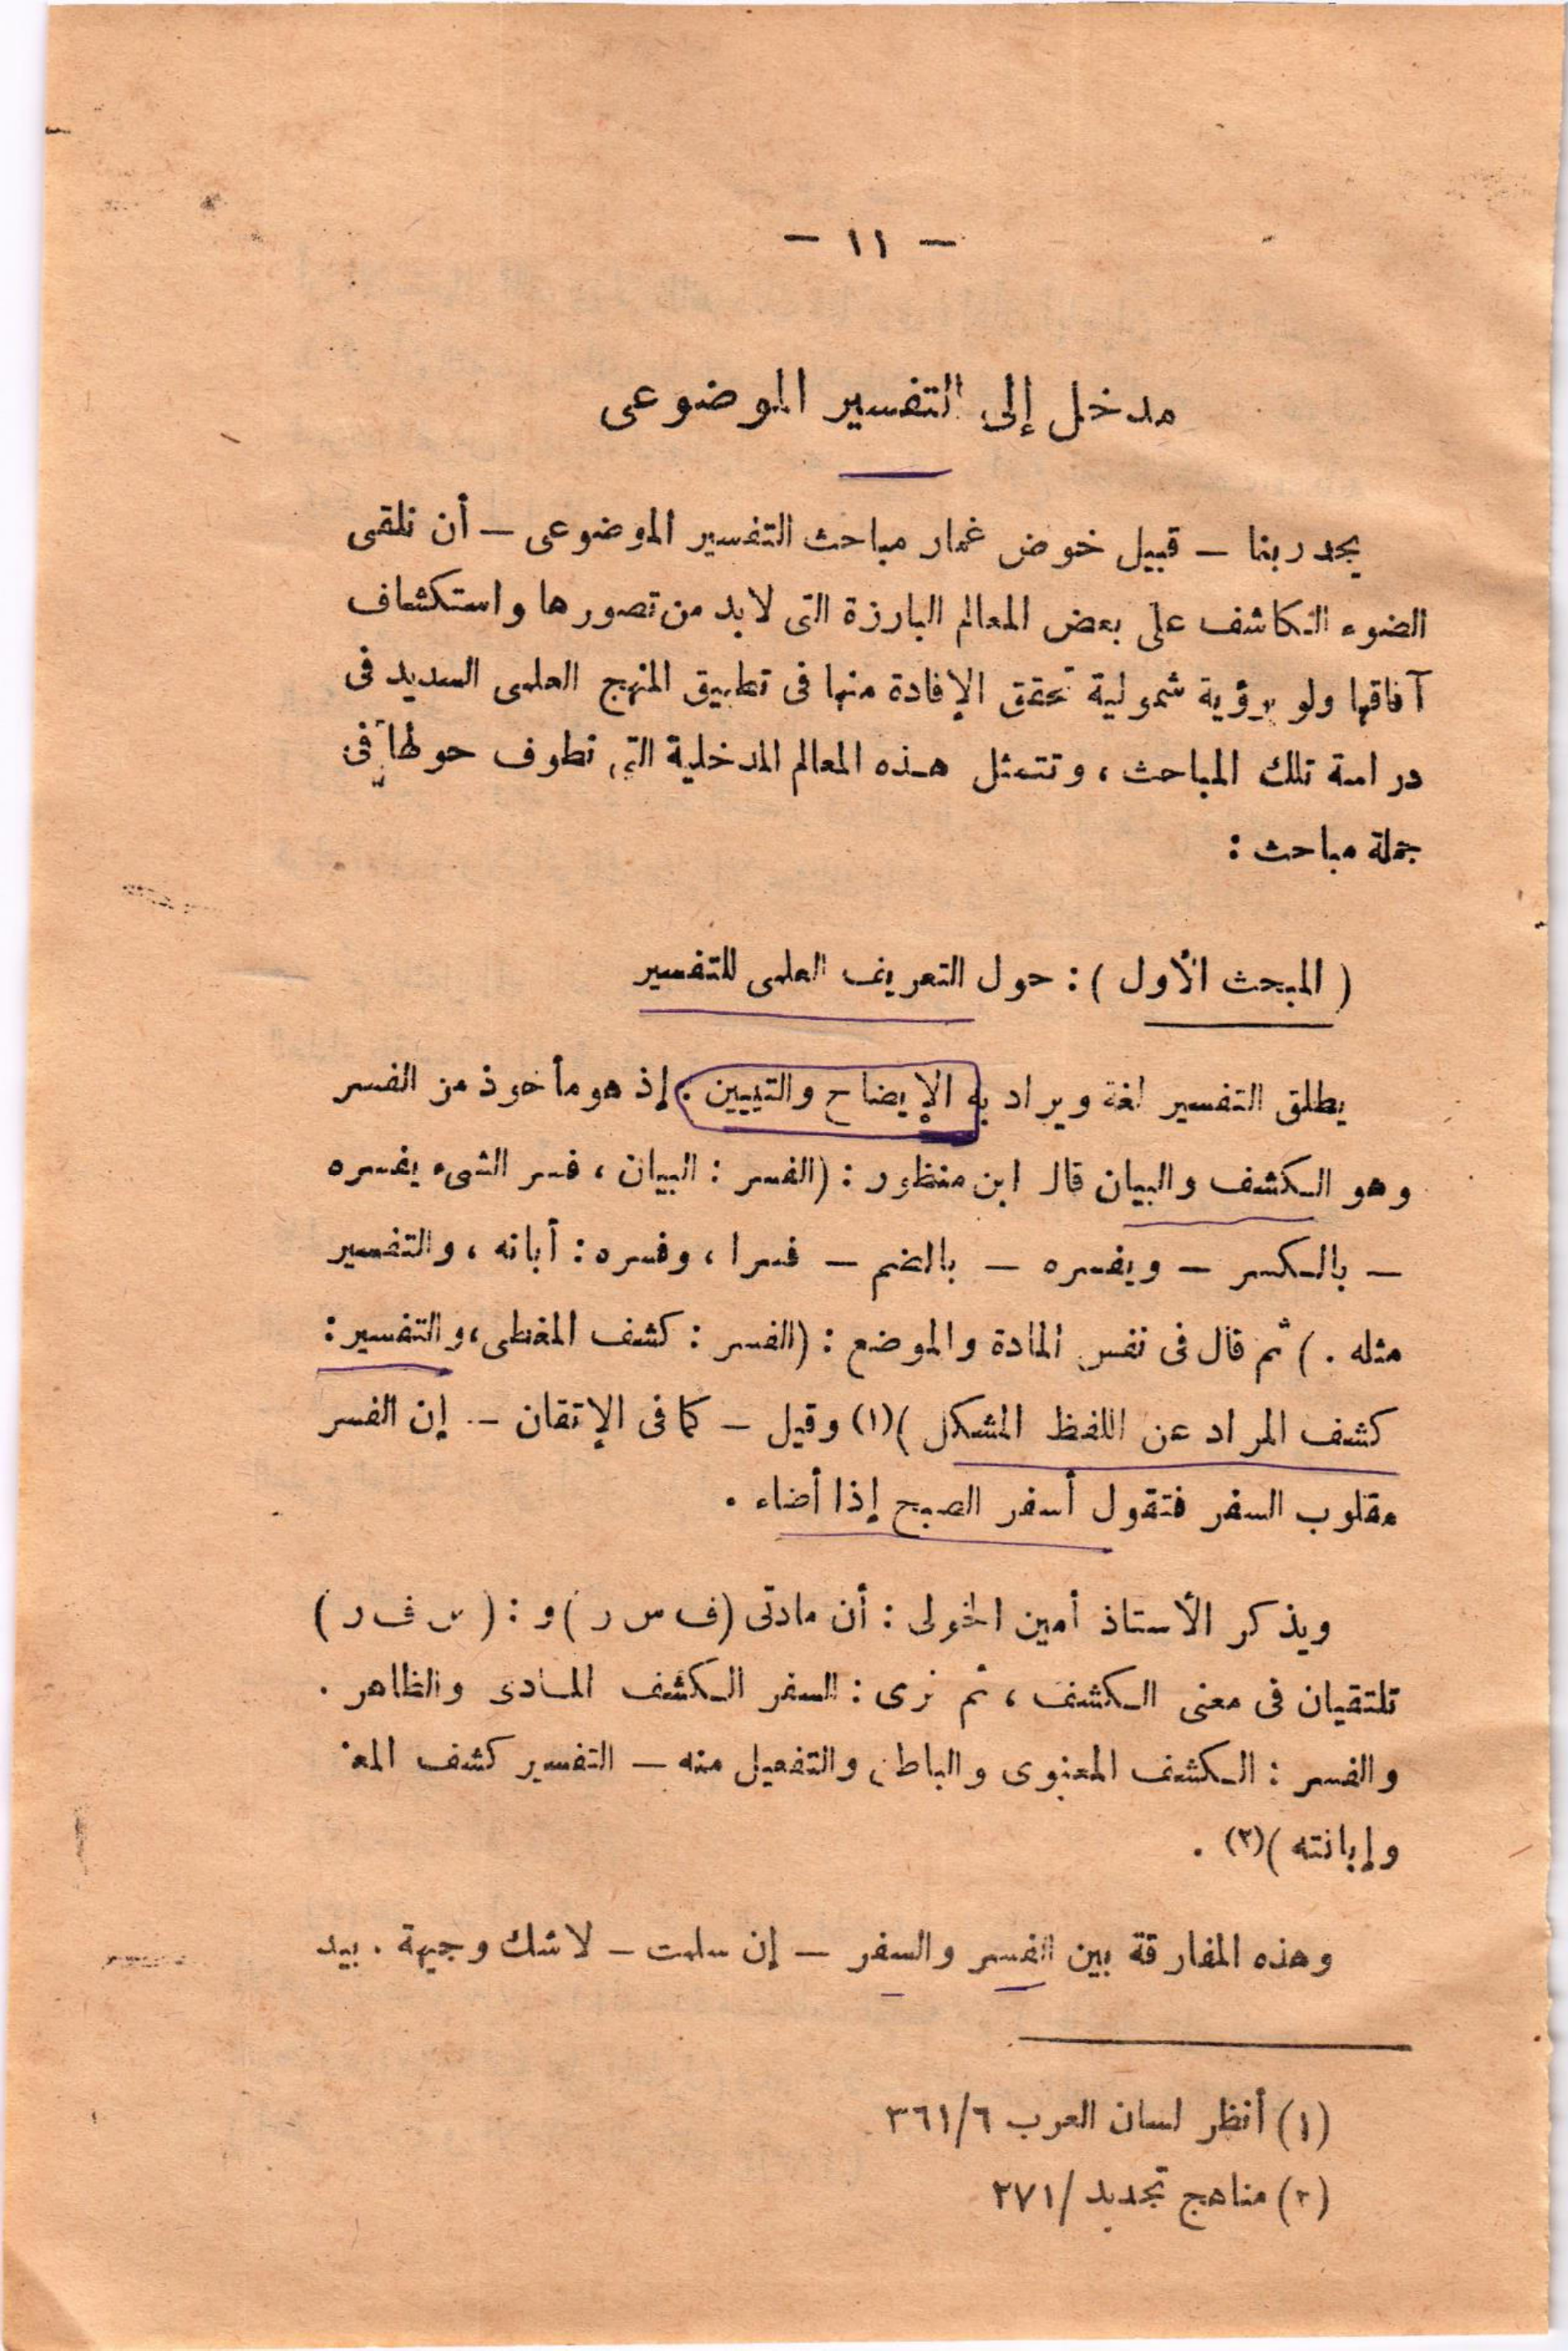 — ١١ —
مدخل إلى التفسير الموضوعى
يجدر بنا — قبيل خوض غمار مباحث التفسير الموضوعى — أن نلقى
الضوء الكاشف على بعض المعالم البارزة التى لا بد من تصورها واستكشاف
آفاقها ولو برؤية شمولية تحقق الإفادة منها فى تطبيق المنهج العلمى السديد فى
دراسة تلك المباحث ، وتتمثل هذه المعالم المدخلية التى نطوف حولها فى
جملة مباحث :
( المبحث الأول ) : حول التعريف العلمى للتفسير
يطلق التفسير لغة ويراد به الإيضاح والتبيين . إذ هو مأخوذ من الفسر
وهو الكشف والبيان قال ابن منظور : ( الفسر : البيان ، فسر الشىء يفسره
— بالكسر — ويفسره — بالضم — فسرا ، وفسره : أبانه ، والتفسير
مثله . ) ثم قال فى نفس المادة والموضع : ( الفسر : كشف المغطى ، والتفسير :
كشف المراد عن اللفظ المشكل )(١) وقيل — كما فى الإتقان — إن الفسر
مقلوب السفر فتقول أسفر الصبح إذا أضاء .
ويذكر الأستاذ أمين الخولى : أن مادتى ( ف س ر ) و : ( س ف ر )
تلتقيان فى معنى الكشف ، ثم نرى : السفر الكشف المادى والظاهر .
والفسر : الكشف المعنوى والباطن والتفعيل منه — التفسير كشف
وإبانته )(٢) .
وهذه المفارقة بين الفسر والسفر — إن سلمت — لا شك وجيهة . بيد
(١) أنظر لسان العرب ٣٦١/٦
(٢) مناهج تجديد /٢٧١